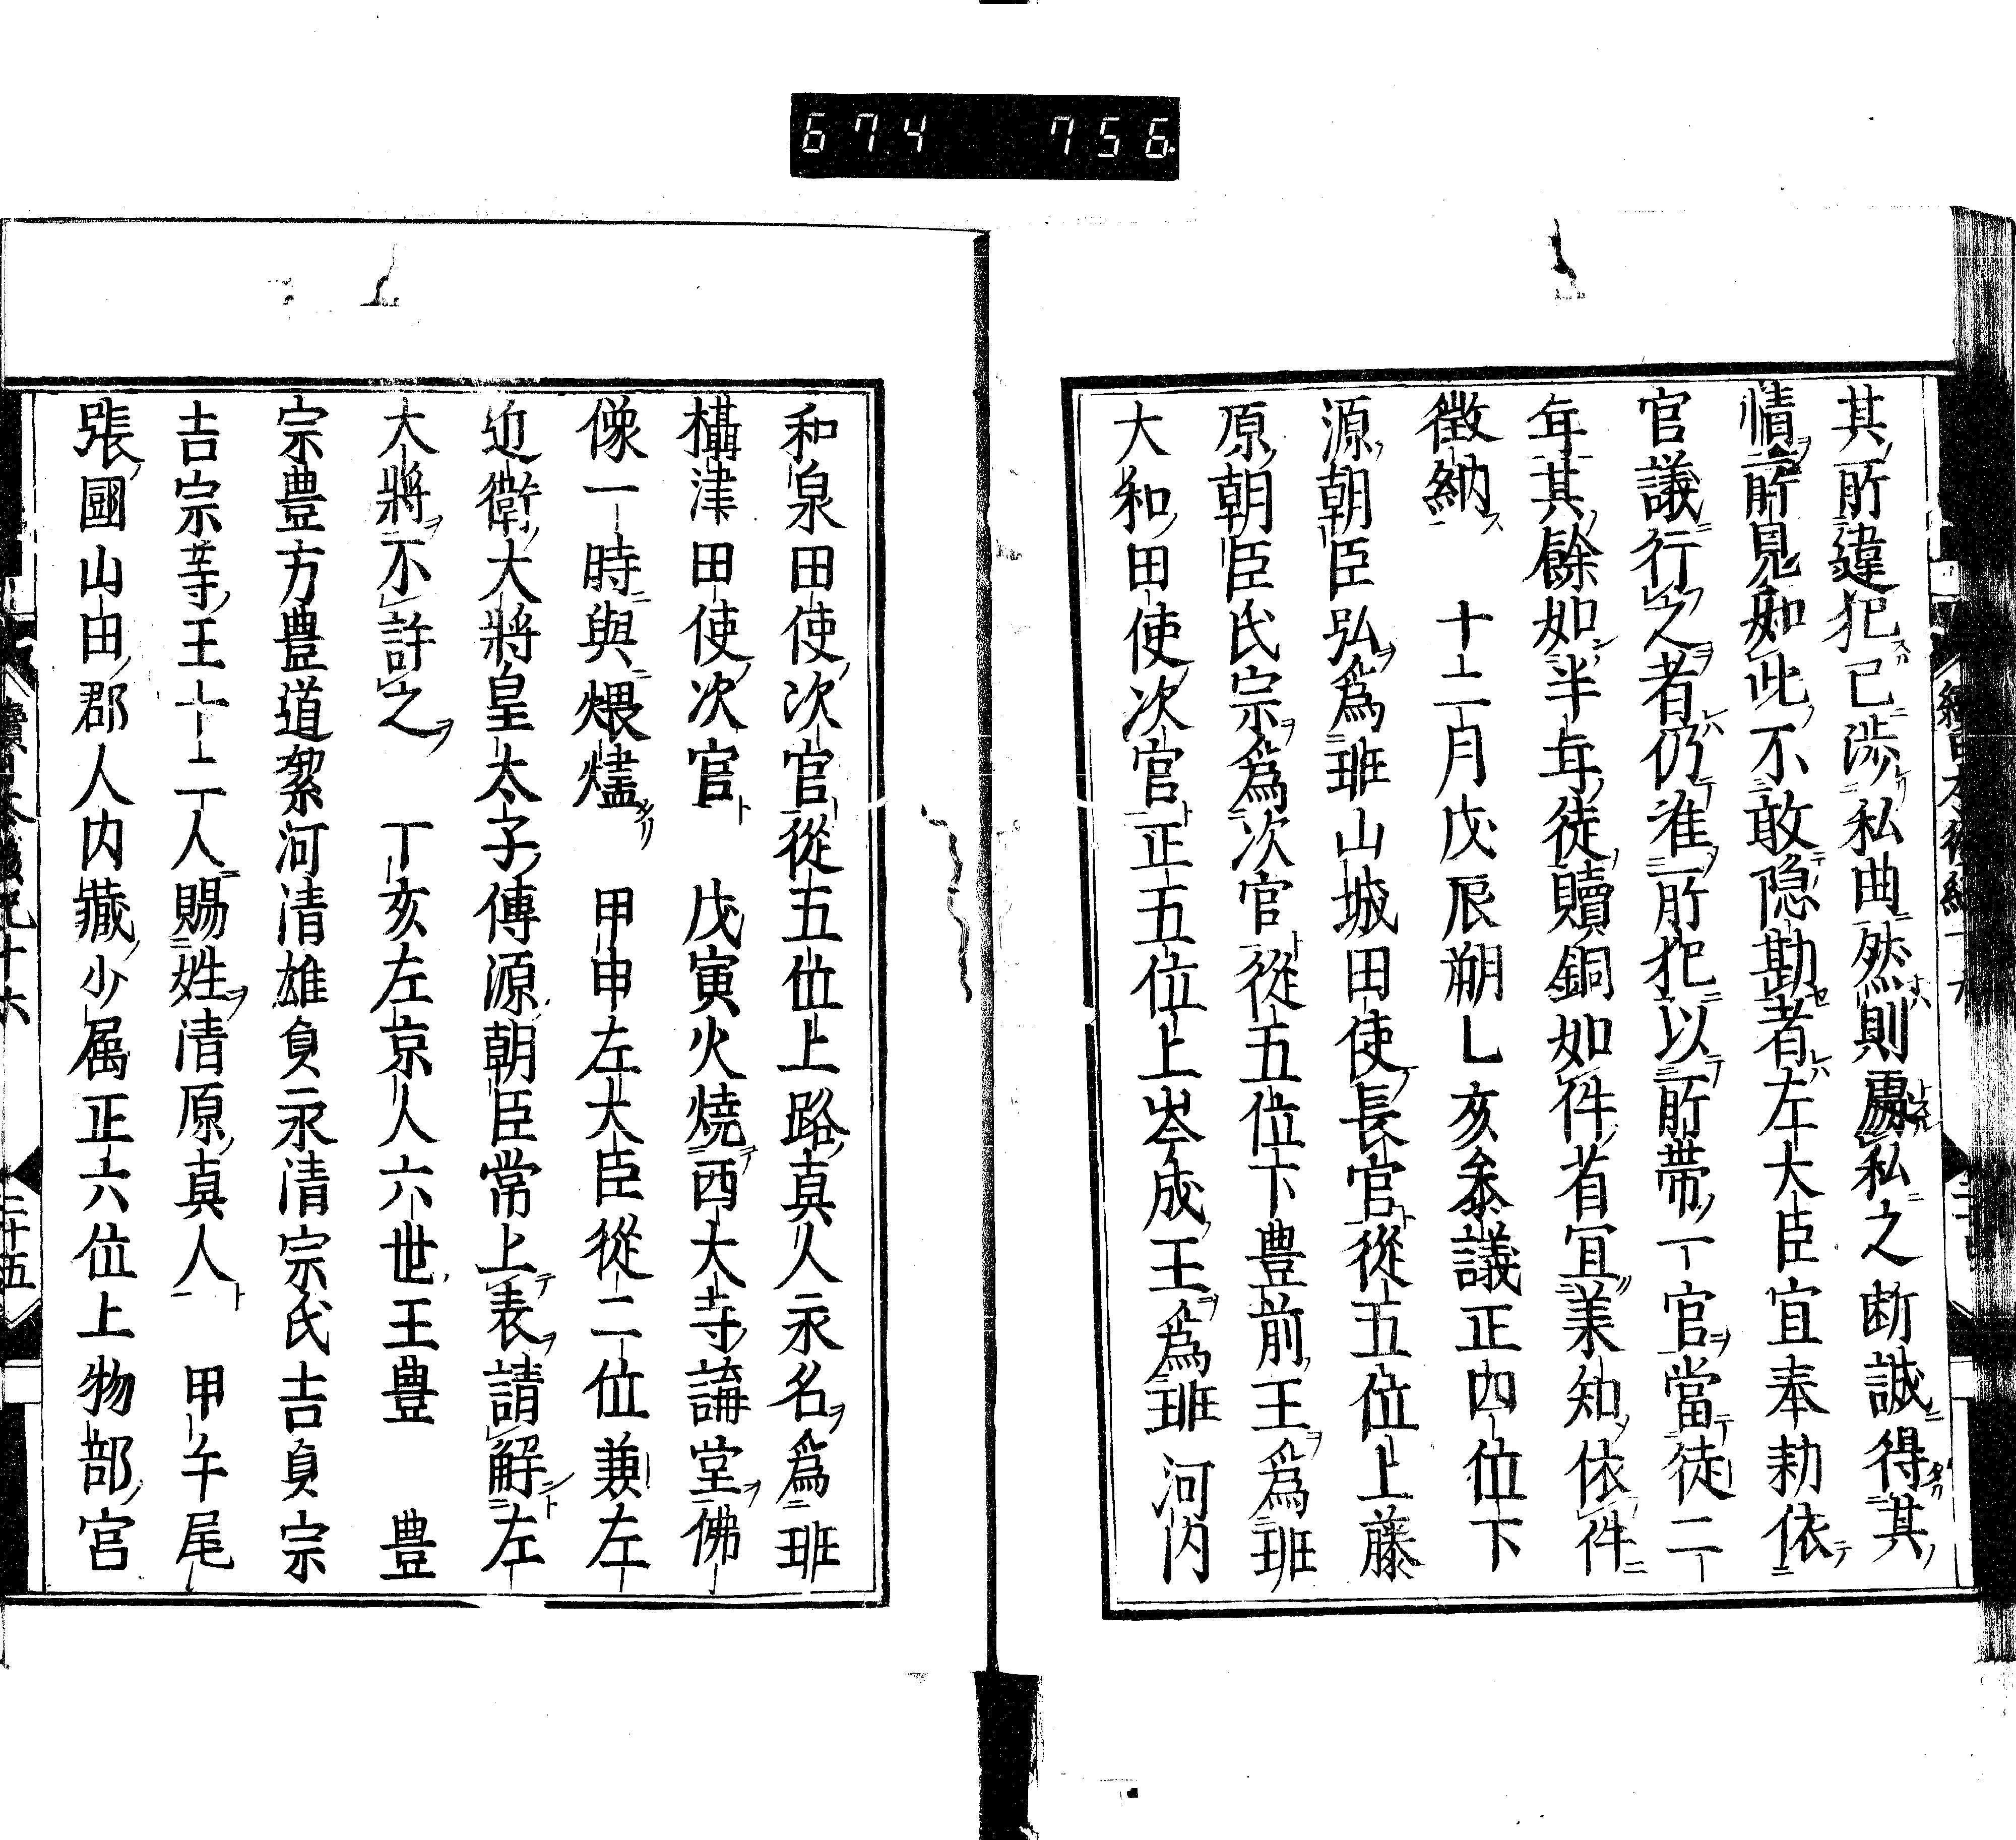 674 756
其所違犯已渉私曲然則處私之断誠得其
情所見如此不敢隠勘者左大臣宜奉勅依
官議行之者仍准所犯以所帯一官當徒二
年其餘如半年徒贖銅如件省宜業知依件
徴納　十二月戊辰朔乚亥叅議正四位下
源朝臣弘爲班山城田使長官從五位上藤
原朝臣氏宗爲次官從五位下豊前王爲班
大和田使次官正五位上岑成王爲班河内
和泉田使次官從五位上路真人永名爲班
攝津田使次官　戊寅火燒西大寺講堂佛
像一時與煨燼　甲申左大臣從二位兼左
近衛大將皇太子傳源朝臣常上表請解左
大將不許之　丁亥左京人六世王豊　豊
宗豊方豊道絮河清雄貟永清宗氏吉貟宗
吉宗等王十二人賜姓清原真人　甲午尾
張國山田郡人内藏少属正六位上物部宮
二十五